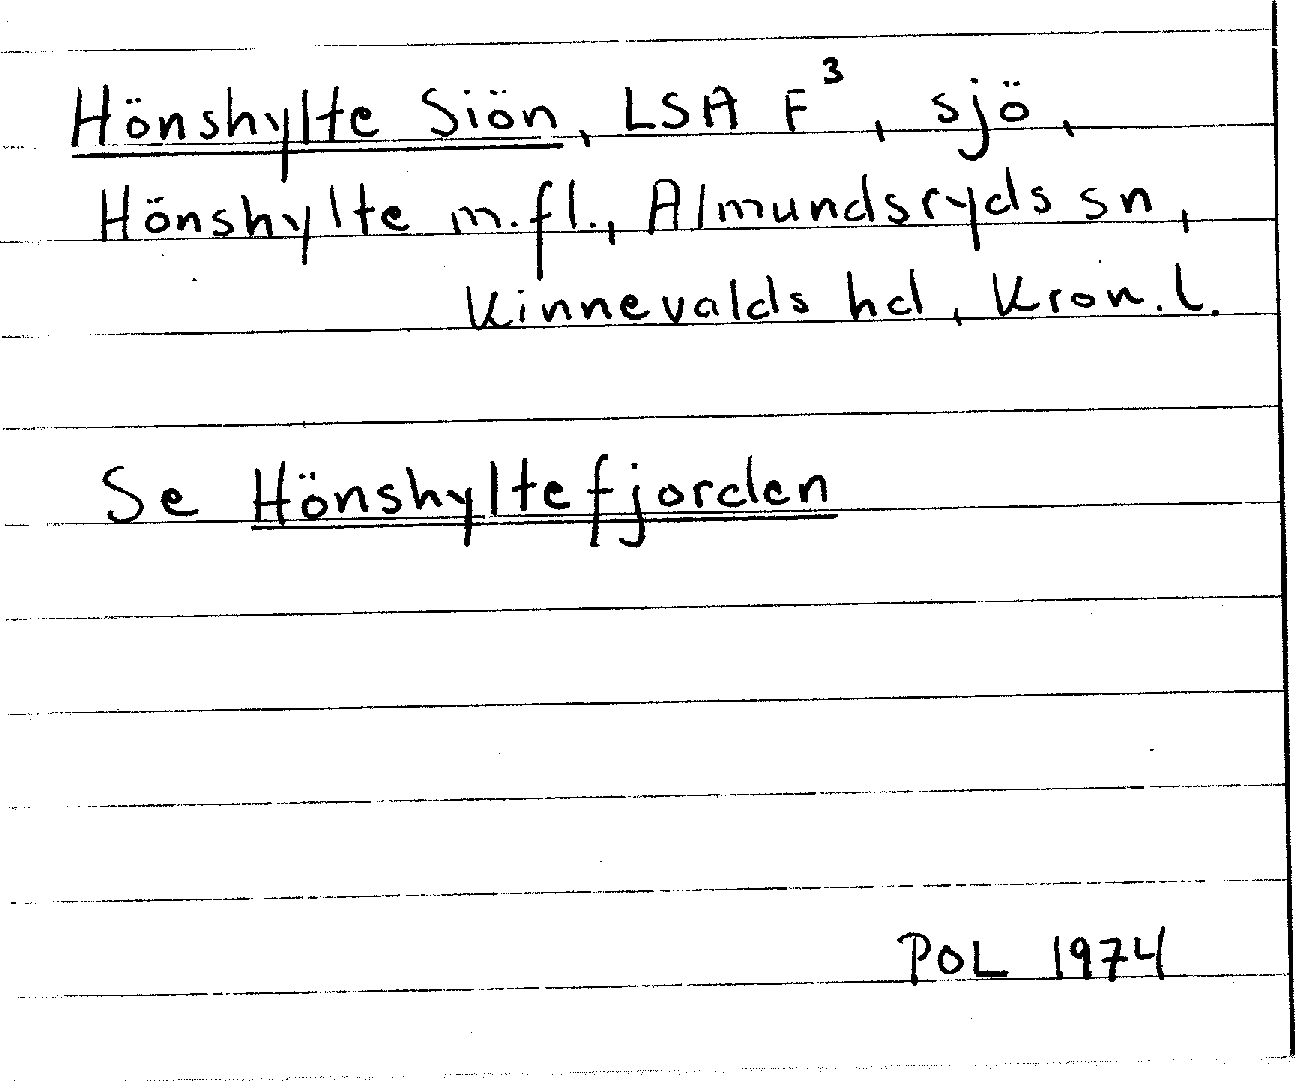 Hönshylte Siön, LSA F³, sjö,
Hönshylte m.fl., Almundsryds sn,
Kinnevalds hd, Kron. l.
Se Hönshyltefjorden
POL 1974